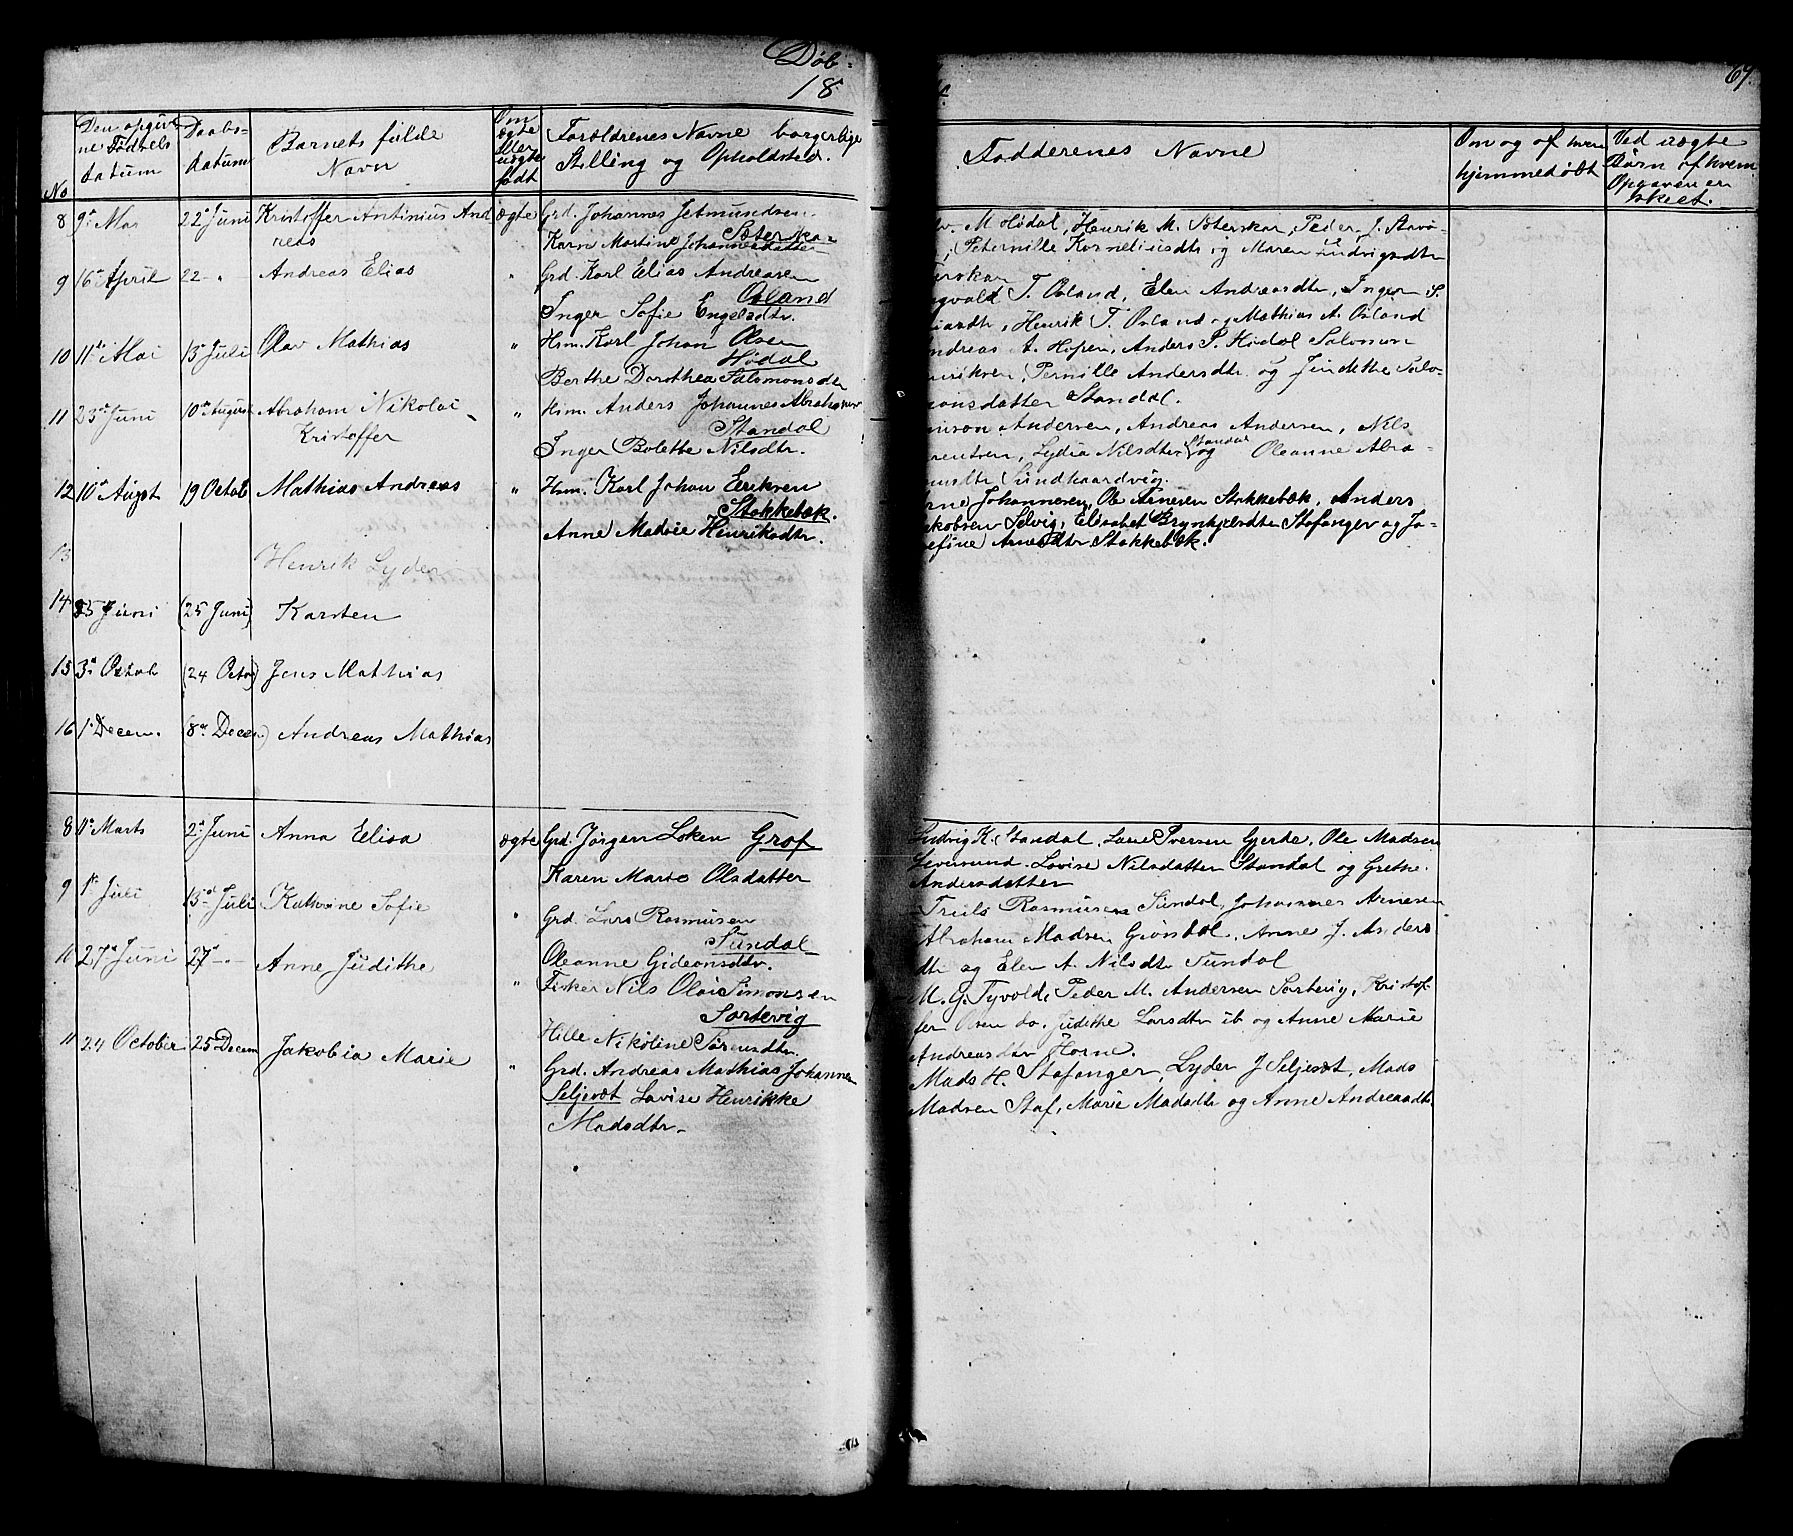 Døb-
18
67.
No
Den opgiv-
ne Fødsels
datum
Daabs-
datum
Barnets fulde
Navn
Om
ægte
eller
uægte
født
Forældrenes Navne borgerlige
Stilling og Opholdsted.
Fadderenes Navne
Om og af hvem
hjemmedøbt
Ved uægte
Børn af hvem
Opgaven er
skeet.
8 9de Mai 22de Juni Kristoffer Antinius And
reas
ægte Grd. Johannes Jetmundsen
Sæterska-
Karn Martine Johannesdatter
M Hødal, Henrik M. Sæterskar, Peder J.
Peternille Korneliusdtr og Maren Ludvigsdtr
9 16de April 22 - " Andreas Elias " Grd. Karl Elias Andreasen
Osland
Inger Sofie Engelsdtr.
T. Osland, Elen Andreasdtr, Inger S.
Henrik T. Osland og Mathias A. Osland
10 11te Mai 13de Juli Olav Mathias " Hsm. Karl Johan Olsen
Hødal
Berthe Dorothea Salomonsdtr
A. Hopen, Anders P. Hødal Salomon
Pernille Andersdtr. og Judithe Salo-
Standal.
11 23de Juni 10de August Abraham Nikolai
Kristoffer
" Hsm. Anders Johannes Abrahamsen
Standal
Inger Bolette Nilsdtr.
Andersen, Andreas Andersen, Nils
Lydia Nilsdtr Standal og Oleanne Abra-
Sundhaardvig.
12 10de Augst 19 Octob Mathias Andreas " Hsm. Karl Johan Eriksen
Stokkebæk.
Anne Madsie Henriksdtr.
Johannesen, Ole Arnesen Stokkebæk, Anders
Selvig, Elisabet Brynhjelsdtr Stafanger og Jo-
Arnesdtr Stokkebæk.
13 Henrik Lyder
14 25 Juni (25 Juni) Karsten
15 3de Octob (24 Octo) Jens Mathias
16 1ste Decem. (8de Decem) Andreas Mathias
8 11te Marts 2den Juni Anna Elisa ægte Grd. Jørgen Loken Grof
Karen Marte Olsdatter
Ludvig K. Standal, Lasse Iversen Gjerde, Ole Madsen
Leversund. Lovise Nilsdatter Standal og Grethe
Andersdatter
9 1ste Juli 13de Juli Kathrine Sofie " Grd. Lars Rasmusen
Sundal
Oleanne Gideonsdtr.
Truls Rasmusen Sundal, Johannes Arnesen
Abraham Madsen Grøndal, Anne J. Anders
dtr og Elen A. Nilsdtr Sundal
10 27de Juni 27de -"- Anne Judithe " Fisker Nils Olai Simonsen
Sortevig
Hille Nikoline
M. G. Tyvold, Peder M. Andersen Sortevig, Kristof-
fer Olsen do. Judithe Larsdtr ib og Anne Marie
Andreasdtr Horne.
11 24 October 25 Decem Jakobia Marie " Grd. Andreas Mathias Johannes
Seljesæt Lovise Henrikke
Madsdtr.
Mads H. Stafanger, Lyder J Seljesæt, Mads
Madsen Staf, Marie Madsdtr og Anne Andreasdtr